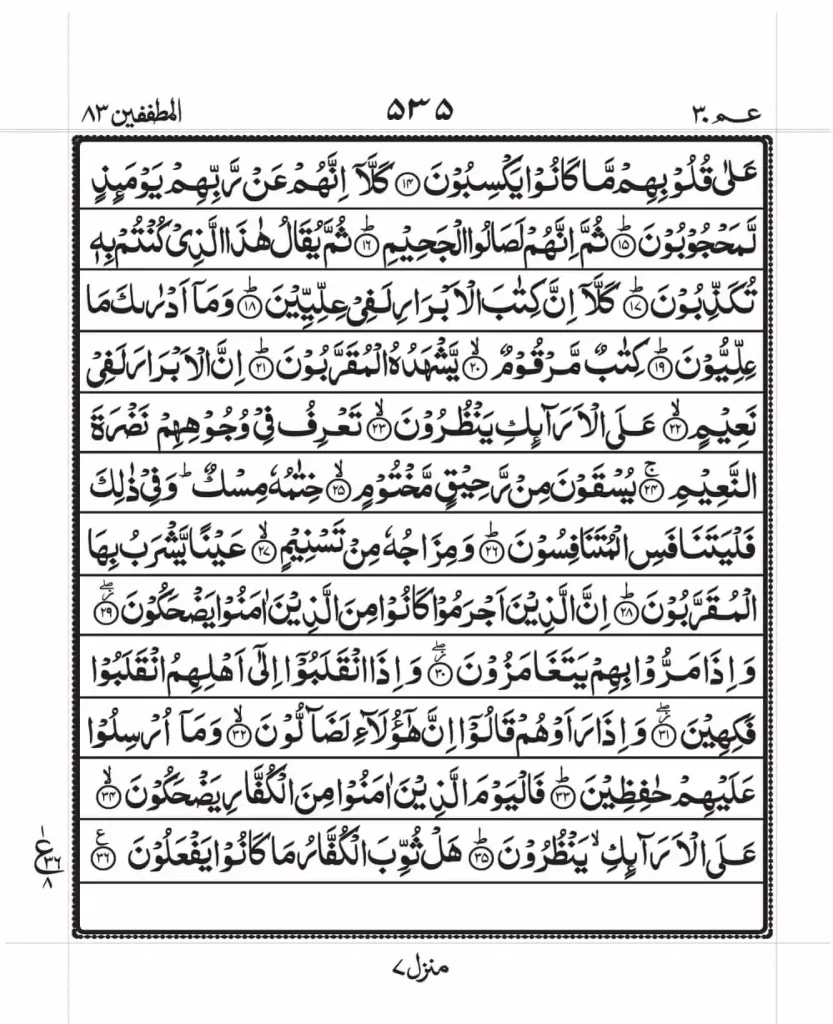 عـم ٣٠ ٥٣٥ المطففين ٨٣
عَلٰى قُلُوْبِهِمْ مَّا كَانُوْا يَكْسِبُوْنَ ﴿١٤﴾ كَلَّاۤ اِنَّهُمْ عَنْ رَّبِّهِمْ يَوْمَىِٕذٍ
لَّمَحْجُوْبُوْنَؕ ﴿١٥﴾ ثُمَّ اِنَّهُمْ لَصَالُوا الْجَحِيْمِؕ ﴿١٦﴾ ثُمَّ يُقَالُ هٰذَا الَّذِيْ كُنْتُمْ بِهٖ
تُكَذِّبُوْنَؕ ﴿١٧﴾ كَلَّاۤ اِنَّ كِتٰبَ الْاَبْرَارِ لَفِيْ عِلِّيِّيْنَؕ ﴿١٨﴾ وَمَاۤ اَدْرٰىكَ مَا
عِلِّيُّوْنَؕ ﴿١٩﴾ كِتٰبٌ مَّرْقُوْمٌۙ ﴿٢٠﴾ يَّشْهَدُهُ الْمُقَرَّبُوْنَؕ ﴿٢١﴾ اِنَّ الْاَبْرَارَ لَفِيْ
نَعِيْمٍۙ ﴿٢٢﴾ عَلَى الْاَرَآىِٕكِ يَنْظُرُوْنَۙ ﴿٢٣﴾ تَعْرِفُ فِيْ وُجُوْهِهِمْ نَضْرَةَ
النَّعِيْمِۚ ﴿٢٤﴾ يُسْقَوْنَ مِنْ رَّحِيْقٍ مَّخْتُوْمٍۙ ﴿٢٥﴾ خِتٰمُهٗ مِسْكٌؕ وَفِيْ ذٰلِكَ
فَلْيَتَنَافَسِ الْمُتَنَافِسُوْنَؕ ﴿٢٦﴾ وَمِزَاجُهٗ مِنْ تَسْنِيْمٍۙ ﴿٢٧﴾ عَيْنًا يَّشْرَبُ بِهَا
الْمُقَرَّبُوْنَؕ ﴿٢٨﴾ اِنَّ الَّذِيْنَ اَجْرَمُوْا كَانُوْا مِنَ الَّذِيْنَ اٰمَنُوْا يَضْحَكُوْنَ ﴿٢٩﴾
وَاِذَا مَرُّوْا بِهِمْ يَتَغَامَزُوْنَ ﴿٣٠﴾ وَاِذَا انْقَلَبُوْۤا اِلٰۤى اَهْلِهِمُ انْقَلَبُوْا
فَكِهِيْنَ ﴿٣١﴾ وَاِذَا رَاَوْهُمْ قَالُوْۤا اِنَّ هٰۤؤُلَآءِ لَضَآلُّوْنَۙ ﴿٣٢﴾ وَمَاۤ اُرْسِلُوْا
عَلَيْهِمْ حٰفِظِيْنَؕ ﴿٣٣﴾ فَالْيَوْمَ الَّذِيْنَ اٰمَنُوْا مِنَ الْكُفَّارِ يَضْحَكُوْنَۙ ﴿٣٤﴾
عَلَى الْاَرَآىِٕكِۙ يَنْظُرُوْنَؕ ﴿٣٥﴾ هَلْ ثُوِّبَ الْكُفَّارُ مَا كَانُوْا يَفْعَلُوْنَ ﴿٣٦﴾
١ ع ٣٦ ٨
منزل ٧